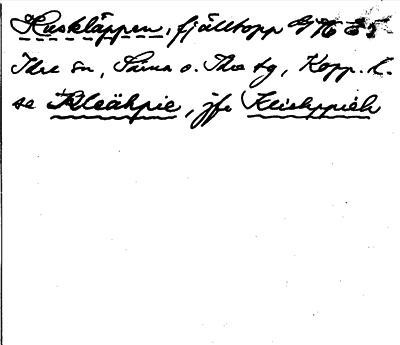 Huskläppen, fjälltopp G 76 E 2
Idre sn, Särna o. Idre tg, Kopp. l.
se Kleähpie, jfr Kliehppieh